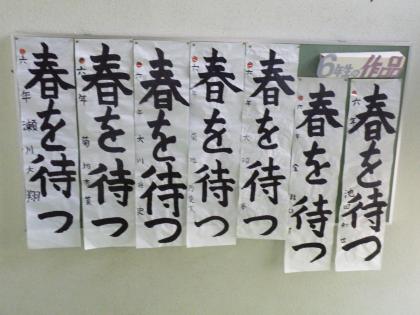 6年生の作品
春を待つ
六年 池田
春を待つ
春を待つ
六年 大沼
春を待つ
春を待つ
六年 大川
春を待つ
六年 菊地
春を待つ
六年 瀬川大翔